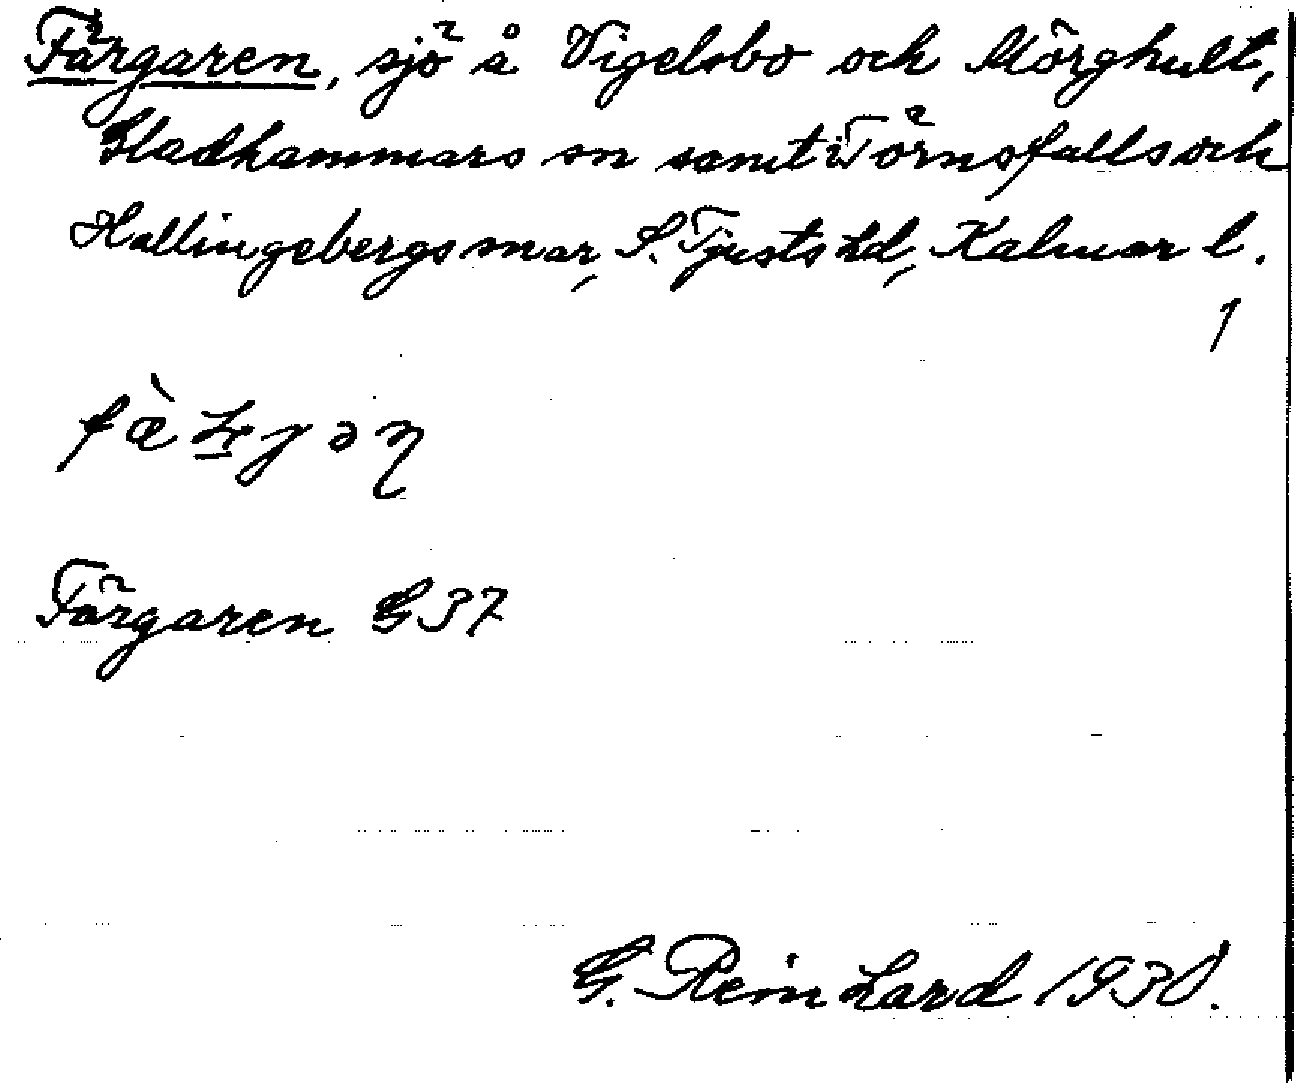 Färgaren, sjö å Vigelsbo och Mörghult,
Gladhammars sn samt i Törnsfalls och
Hallingebergs snar, S. Tjusts hd, Kalmar l.
1
Färgaren G 37
G. Reinhard 1930.